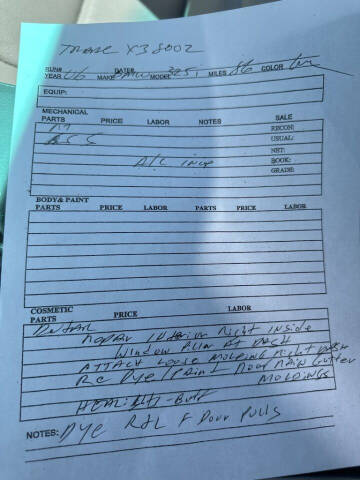 TRADE X38002
RUN# DATE
YEAR 06 MAKE BMW MODEL 325i MILES 86 COLOR
EQUIP:
MECHANICAL
PARTS PRICE LABOR NOTES SALE
RECON:
USUAL:
A/C inop NET:
BOOK:
GRADE:
BODY & PAINT
PARTS PRICE LABOR PARTS PRICE LABOR
COSMETIC
PARTS PRICE LABOR
Detail
Repair Interior Right Inside
Window Trim At Dash
ATTACH LOOSE MOLDING Right
Re Dye/Paint Door Rain Gutter
MOLDINGS
- Buff
NOTES: Dye R&L F Door Pulls